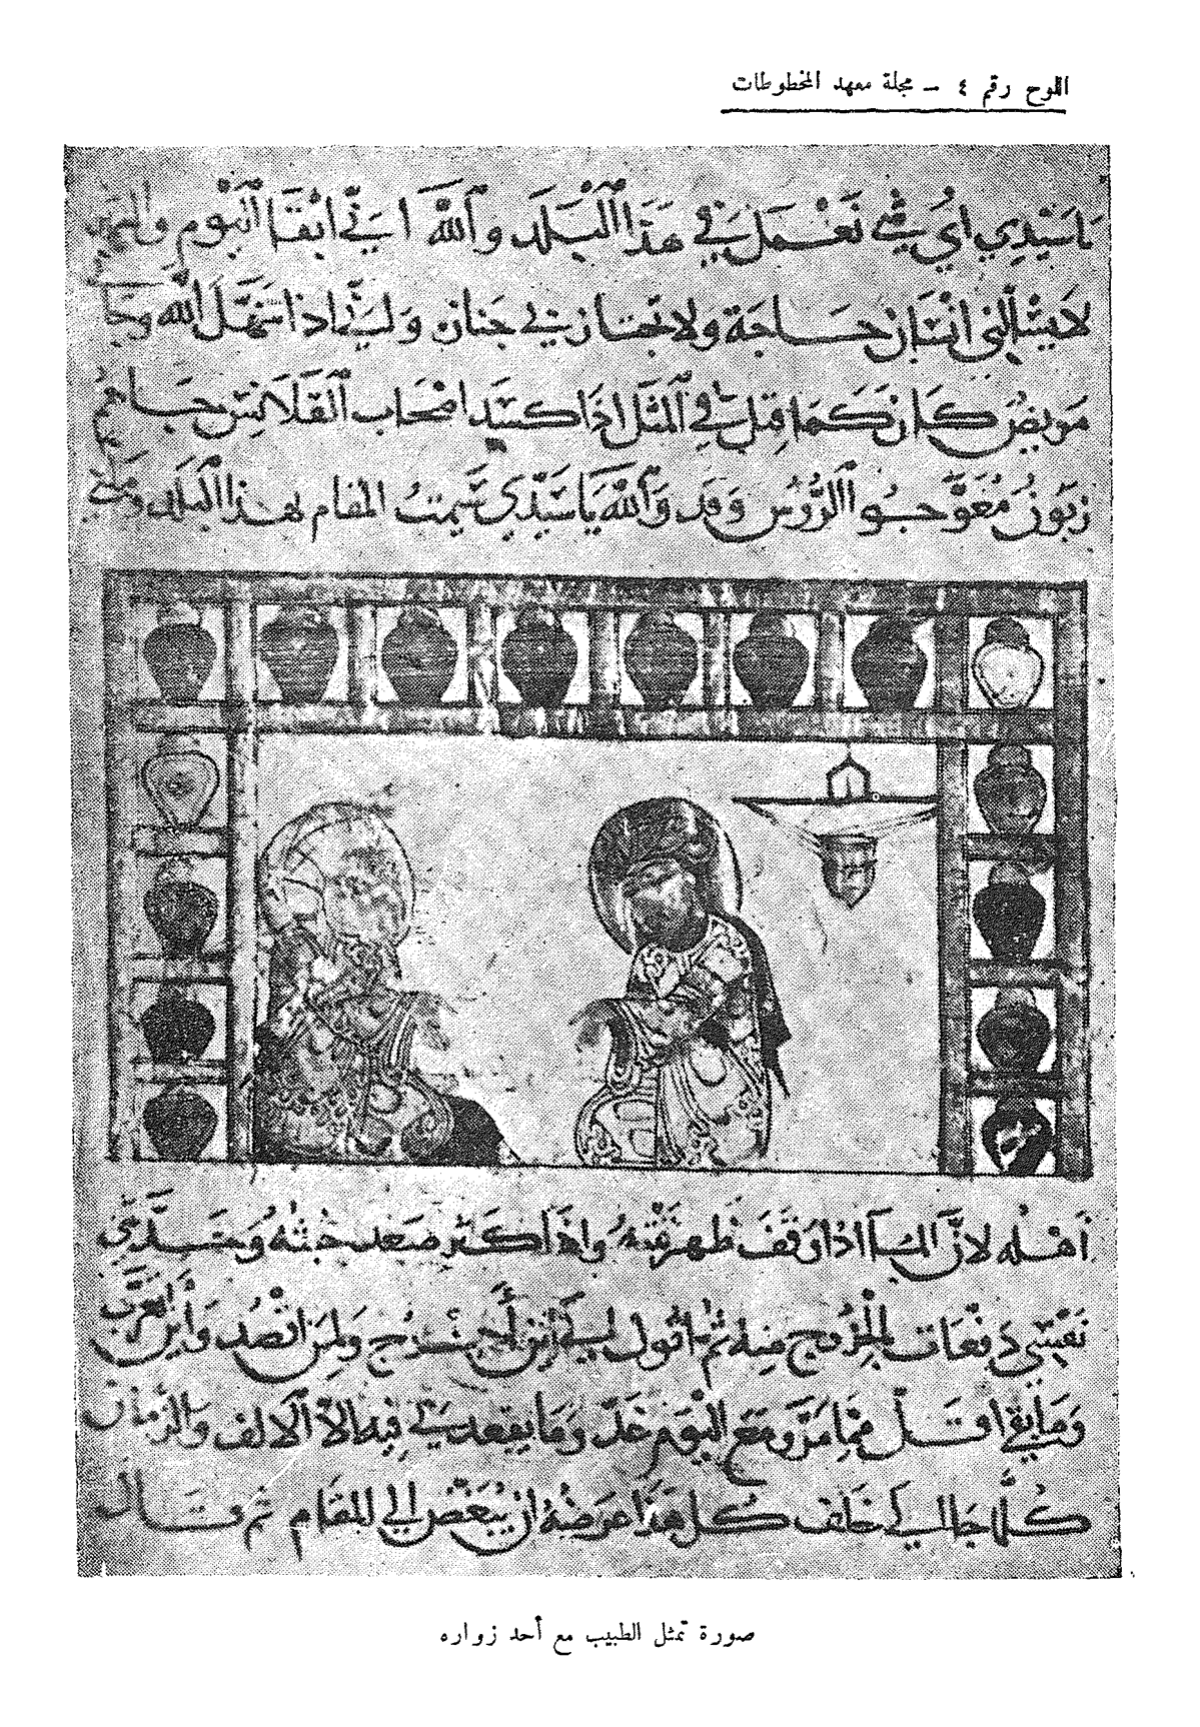 اللوح رقم ٤ – مجلة معهد المخطوطات
يَا سَيِّدِي أيُّ شيءٍ نَعْمَل في هَذَا البَلَد وَاللهِ إنّي أبْقَا اليَوْم
لا يَسْألُني انْسَان حَاجَة ولا تجتاز بي جنازة وَلي اذا سَهَّلَ اللهُ وَجَا
مَريضٌ كَانَ كَمَا قِيلَ في المَثَل اذَا كسَد اصْحَاب القَلَانِس جَاهُم
زبُونٌ مُعَوَّجُو الرُّؤُس وَقَد وَاللهِ يَا سَيِّدِي سَيِمتُ المقَام بهذا البَلَد
أهْلِه لانَّ المَاَ اذا وَقَفَ ظَهَر نَتْنُه واذَا كَثر صَعد خُبْثُهُ وَحَدَّثَتني
نَفسِي دَفعَات بالخُرُوج مِنه ثم اقول لي أينَ أخرُج ولمن اقصُد وَأين أهرُب
وَمَا بقي اقَلّ مِمّا مَرَّ وَمَعَ اليَوْم غَدٌ وَمَا يقعد بي فيه الا الالف وَالزمَان
كُلّمَا جَا الي خلف كُل هَذَا غَرَضُهُ ان يُبَغّض الي المقَام ثم قَال
صورة تمثل الطبيب مع أحد زواره